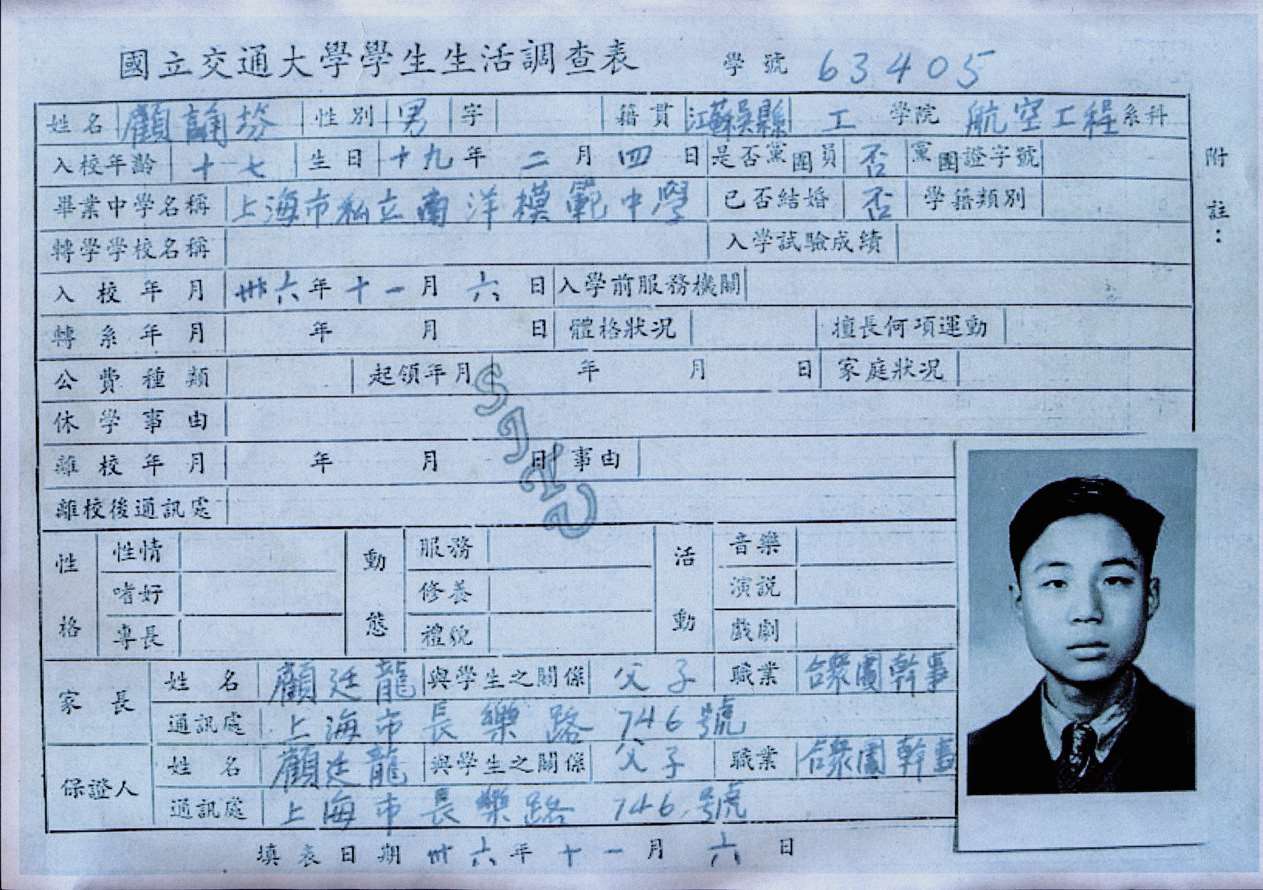 國立交通大學學生生活調查表 學號 63405
姓名 顧誦芬 性別 男 字 籍貫 江蘇吳縣 工 學院 航空工程 系科
入校年齡 十七 生日 十九年二月四日 是否黨團員 否 黨團證字號
畢業中學名稱 上海市私立南洋模範中學 已否結婚 否 學籍類別
轉學學校名稱 入學試驗成績
入校年月 卅六年十一月六日 入學前服務機關
轉系年月 年 月 日 體格狀况 擅長何項運動
公費種類 起領年月 年 月 日 家庭狀况
休學事由
離校年月 年 月 日 事由
離校後通訊處
性格 性情 動態 服務 活動 音樂
嗜好 修養 演説
專長 禮貌 戲劇
家長 姓名 顧廷龍 與學生之關係 父子 職業 合衆圖幹事
通訊處 上海市長樂路746號
保證人 姓名 顧廷龍 與學生之關係 父子 職業 合衆圖幹事
通訊處 上海市長樂路746號
填表日期 卅六年十一月六日
附註：
SJTU